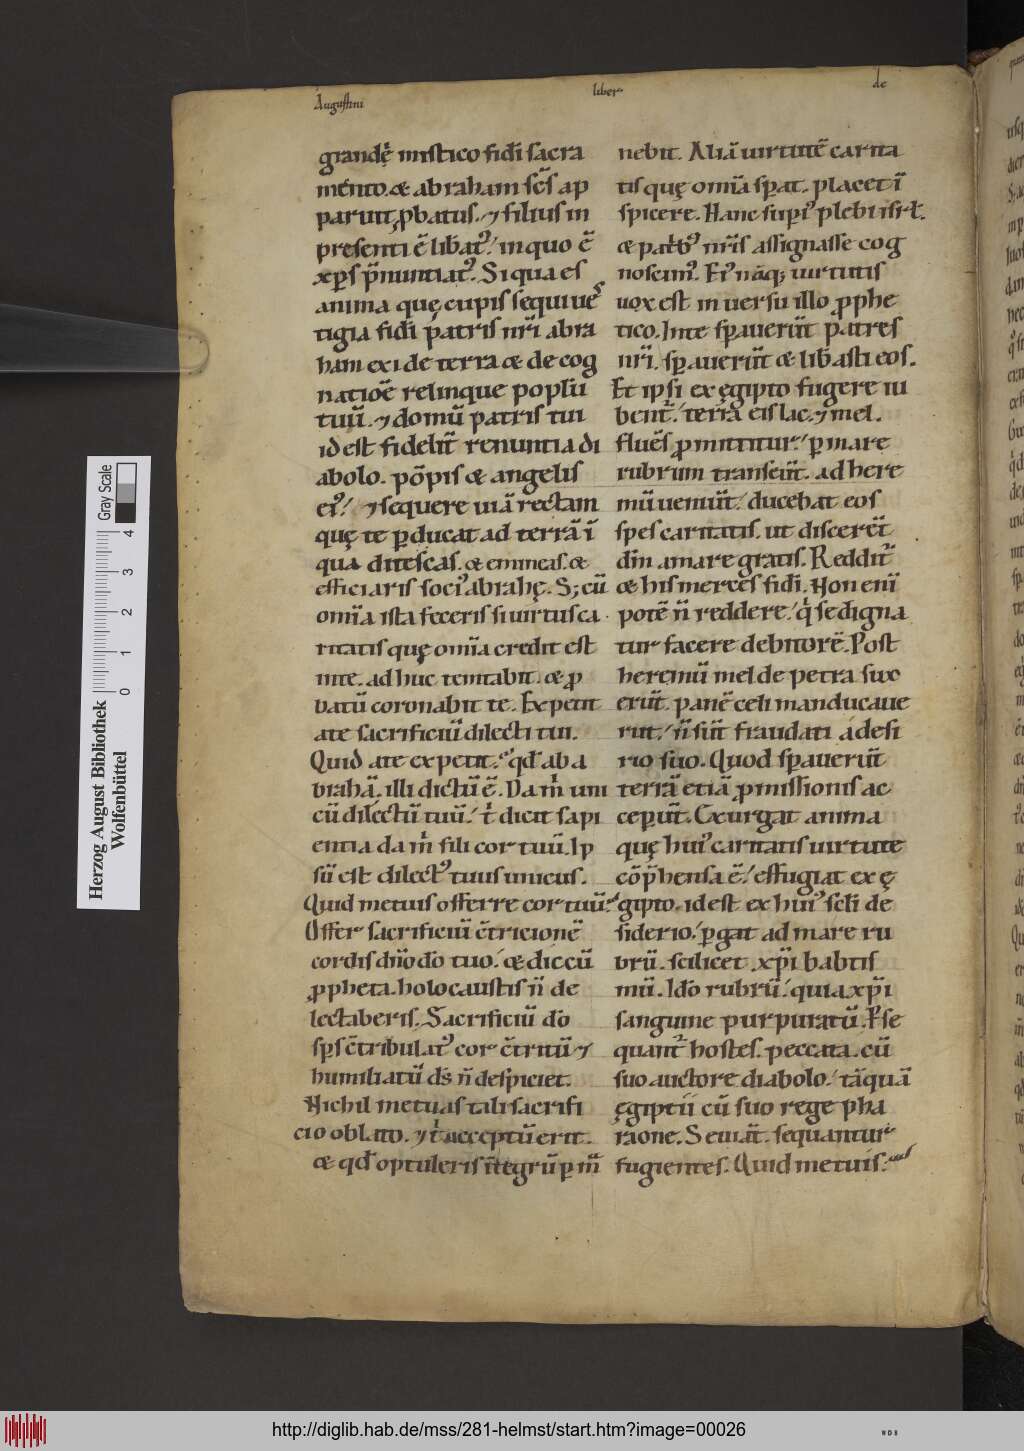 Augustini
liber
de
grandę mistico fidi sacra
mento. & abraham scs ap
paruit, pbatus. ⁊ filius in
presenti ē libatꝰ. in quo ē
xps p̄nuntiatꝰ. Si qua es
anima quę cupis sequi ues
tigia fidi patris nri abra
ham exi de terra & de cog
natiōe relinque poplū
tuū. ⁊ domū patris tui
id est fidelit renuntia di
abolo. pōpis & angelis
eiꝰ. ⁊ sequere uiā rectam
quę te pducat ad terrā ī
qua ditescas. & emineas. &
efficiaris sociꝰ abrahę. S; cū
omīa ista feceris si uirtus ca
ritatis quę omīa credit est
inte. ad huc temtabit. & p
batū coronabit te. Expetit
a te sacrificiū dilecti tui.
Quid a te expetit. qd ab a
brahā. illi dictū ē. Da m uni
cū dilectū tuū. t dicit sapi
entia da m fili cor tuū. Ip
sū est dilectꝰ tuus unicus.
Quid metuis offerre cor tuū.
Offer sacrificiū c̄tricionē
cordis dn̄o do tuo. & dic cū
ppheta. holocaustis n̄ de
lectaberis. Sacrificiū do
sps c̄tribulatꝰ cor c̄tritū ⁊
humiliatū ds n̄ despiciet.
Nichil metuas tali sacrifi
cio oblato. ⁊ t acceptū erit.
& qd optuleris īntegrū p m
nebit. Aliā uirtutē carita
tis quę omīa spat. placet ī
spicere. Hanc supiꝰ plebi isrl.
& patbꝰ nris assignasse cog
noscimꝰ. Eiꝰ nāq; uirtutis
uox est in uersu illo pphe
tico. Inte spauerūt patres
nri. spauerūt & libasti eos.
Et ipsi ex ęgipto fugere iu
bent. terrā eis lac. ⁊ mel.
fluēs pmittitur. p mare
rubrum transeūt. ad here
mū ueniūt. ducebat eos
spes caritatis. ut discerēt
dm̄ amare gratis. Reddit
& his mercēs fidi. Non enī
potē n̄ reddere. q sedigna
tur facere debitorē. Post
heremū mel de petra sux
erūt. panē celi manducaue
rut. n̄ sūt fraudati a desi
rio suo. Quod spauerūt
terrā etiā pmissionis ac
ceperūt. Exurgat anima
quę huiꝰ caritatis uirtute
cōp̄hensa ē. effugiat ex ę
gipto. id est ex huiꝰ scli de
siderio. pgat ad mare ru
brū. scilicet xpi babtis
mū. Ido rubrū. quia xpi
sanguine purpuratū. Pse
quant hostes. peccata. cū
suo auctore diabolo. tāquā
ęgiptii cū suo rege pha
raone. Seuiāt. sequantur
fugientes. Quid metuis.
Herzog August Bibliothek
Wolfenbüttel
Gray Scale
0 1 2 3 4
http://diglib.hab.de/mss/281-helmst/start.htm?image=00026
WDB